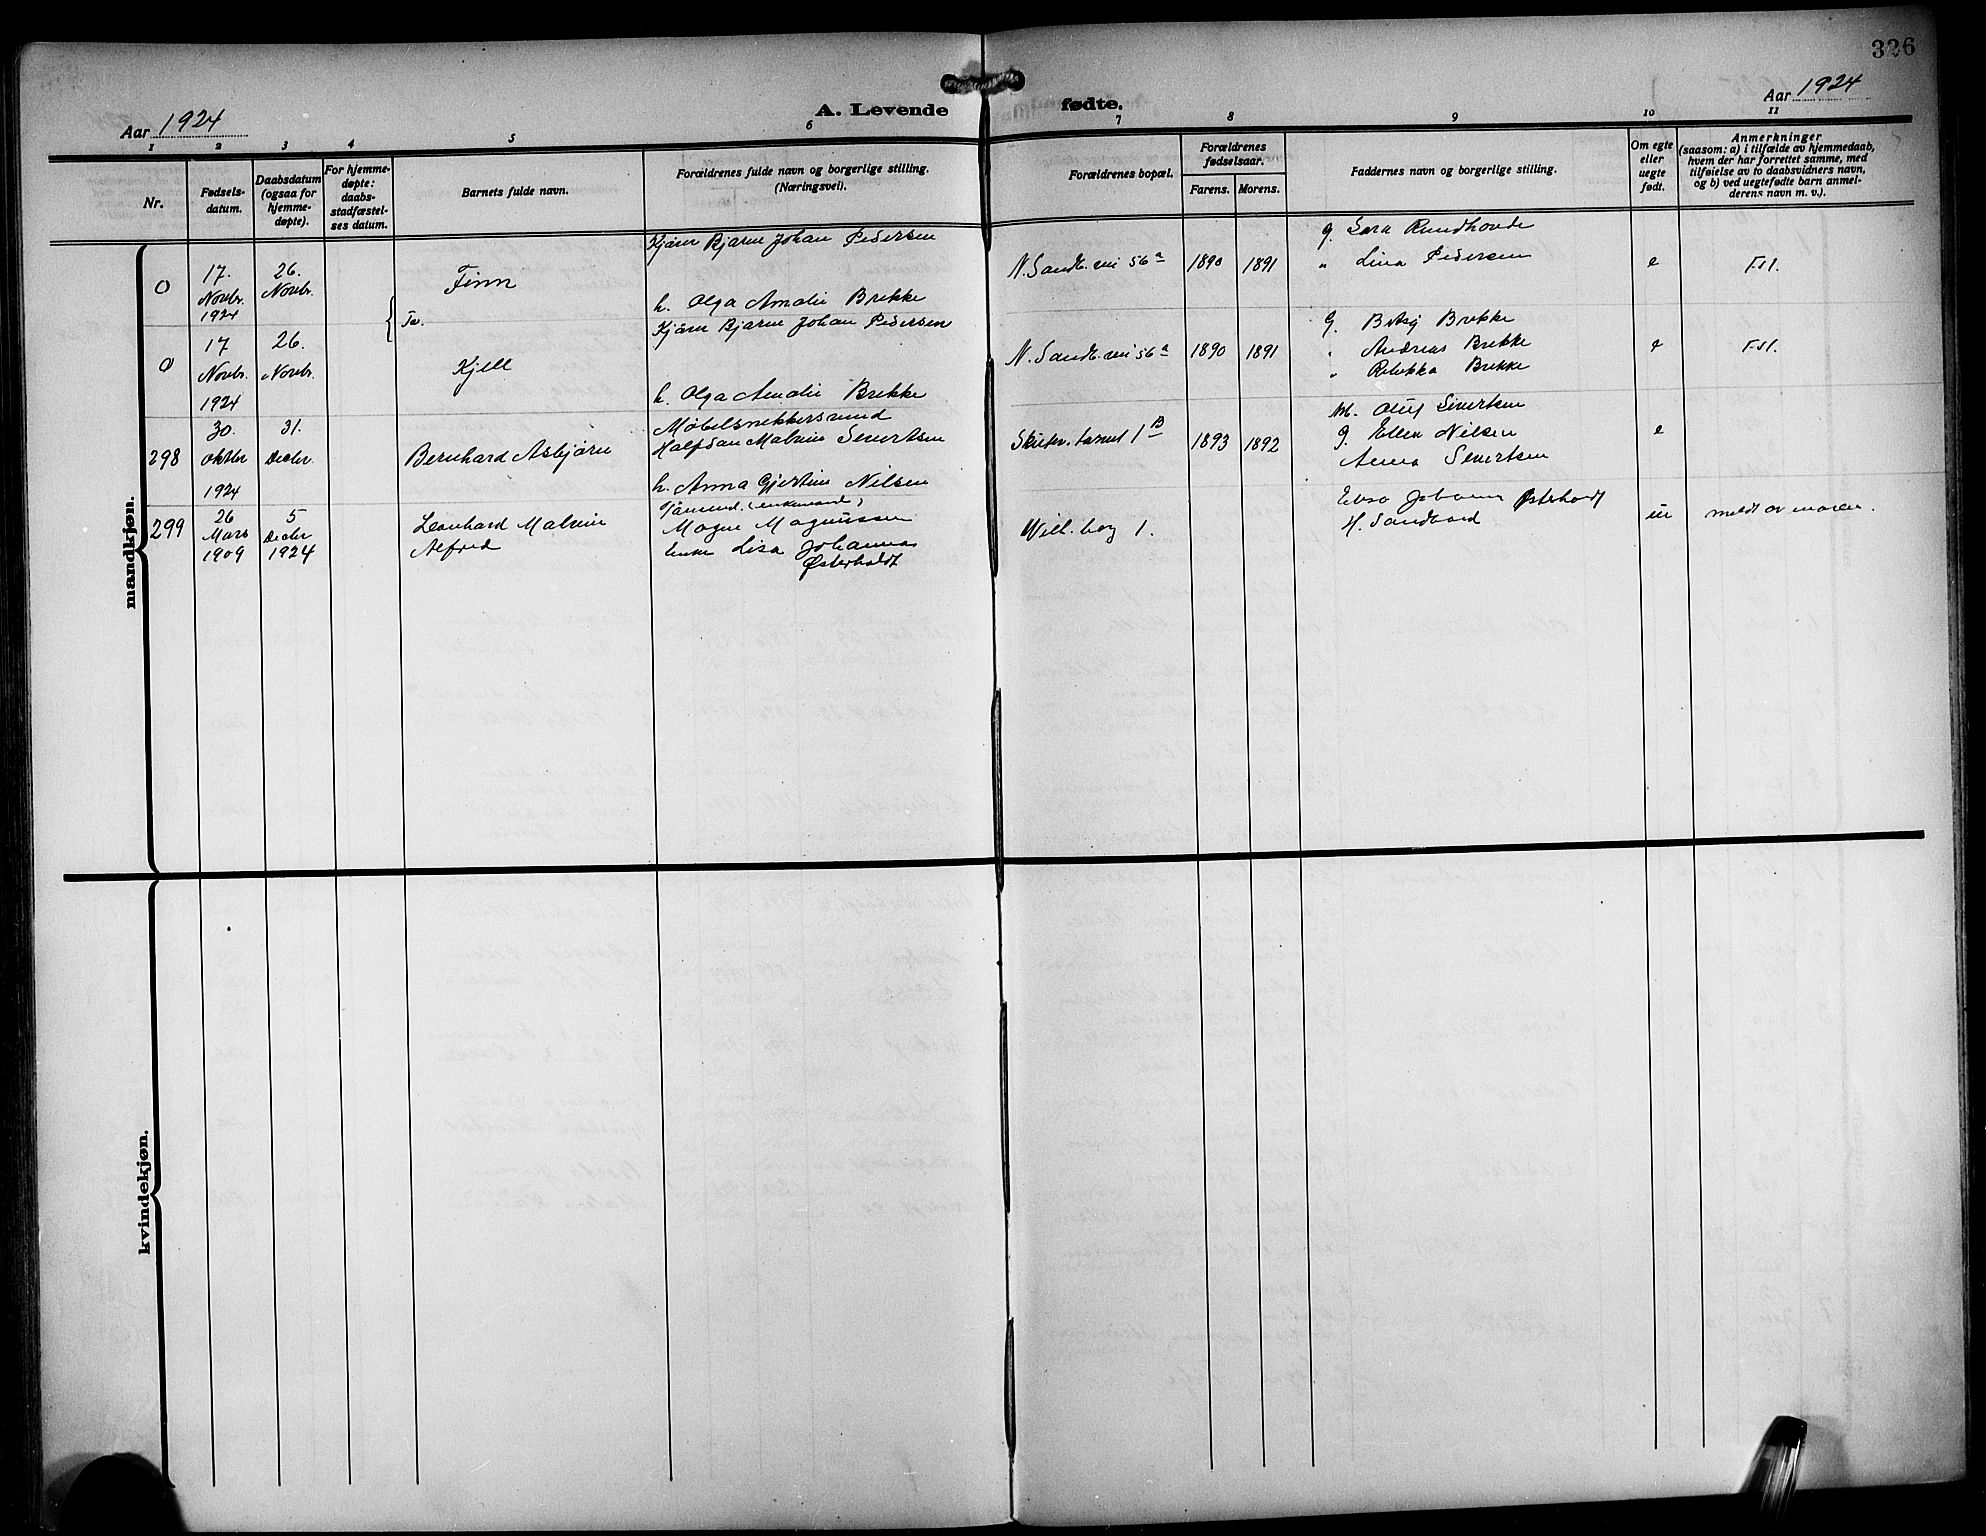 326
Aar 1924
A. Levende fødte.
Aar 1924
1 2 3 4 5 6 7 8 9 10 11
Nr.
Fødsels-
datum.
Daabsdatum
(ogsaa for
hjemme-
døpte).
For hjemme-
døpte:
daabs-
stadfæstel-
ses datum.
Barnets fulde navn.
Forældrenes fulde navn og borgerlige stilling.
(Næringsvei).
Forældrenes bopæl.
Forældrenes
fødselsaar.
Farens. Morens.
Faddernes navn og borgerlige stilling.
Om egte
eller
uegte
født.
Anmerkninger
(saasom: a) i tilfælde av hjemmedaab,
hvem der har forrettet samme, med
tilføielse av to daabsvidners navn,
og b) ved uegtefødte barn anmel-
derens navn m. v.).
mandkjøn.
0
17.
Novbr.
1924
26.
Novbr.
Finn
Kjører Bjarne Johan Pedersen
h. Olga Amalie Brekke
N. Sandv. vei 56a
1890
1891
g. Sara Rundhovde
" Lina Pedersen
e
F.s.l.
Tv.
0
17
Novbr.
1924
26.
Novbr.
Kjell
Kjører Bjarne Johan Pedersen
h. Olga Amalie Brekke
N. Sandv. vei 56a
1890
1891
g. Betsy Brekke
" Andreas Brekke
" Rebekka Brekke
e
F.s.l.
298
30.
Oktbr
1924
31.
Decbr.
Bernhard Asbjørn
Møbelsnekkersvend
Halfdan Malvin Sivertsen
h. Anna Gjertine Nilsen
1B
1893
1892
Oluf Sivertsen
g. Ellen Nilsen
Anna Sivertsen
e
299
26
Mars
1909
5
Decbr
1924
Leonhard Malvin
Alfred
(enkemand)
Mogne Magnussen
enke Lisa Johannas
Østerholdt
Wilh. haug 1.
Østerholdt
H. Sandvaad
ue
meldt av moren.
kvindekjøn.